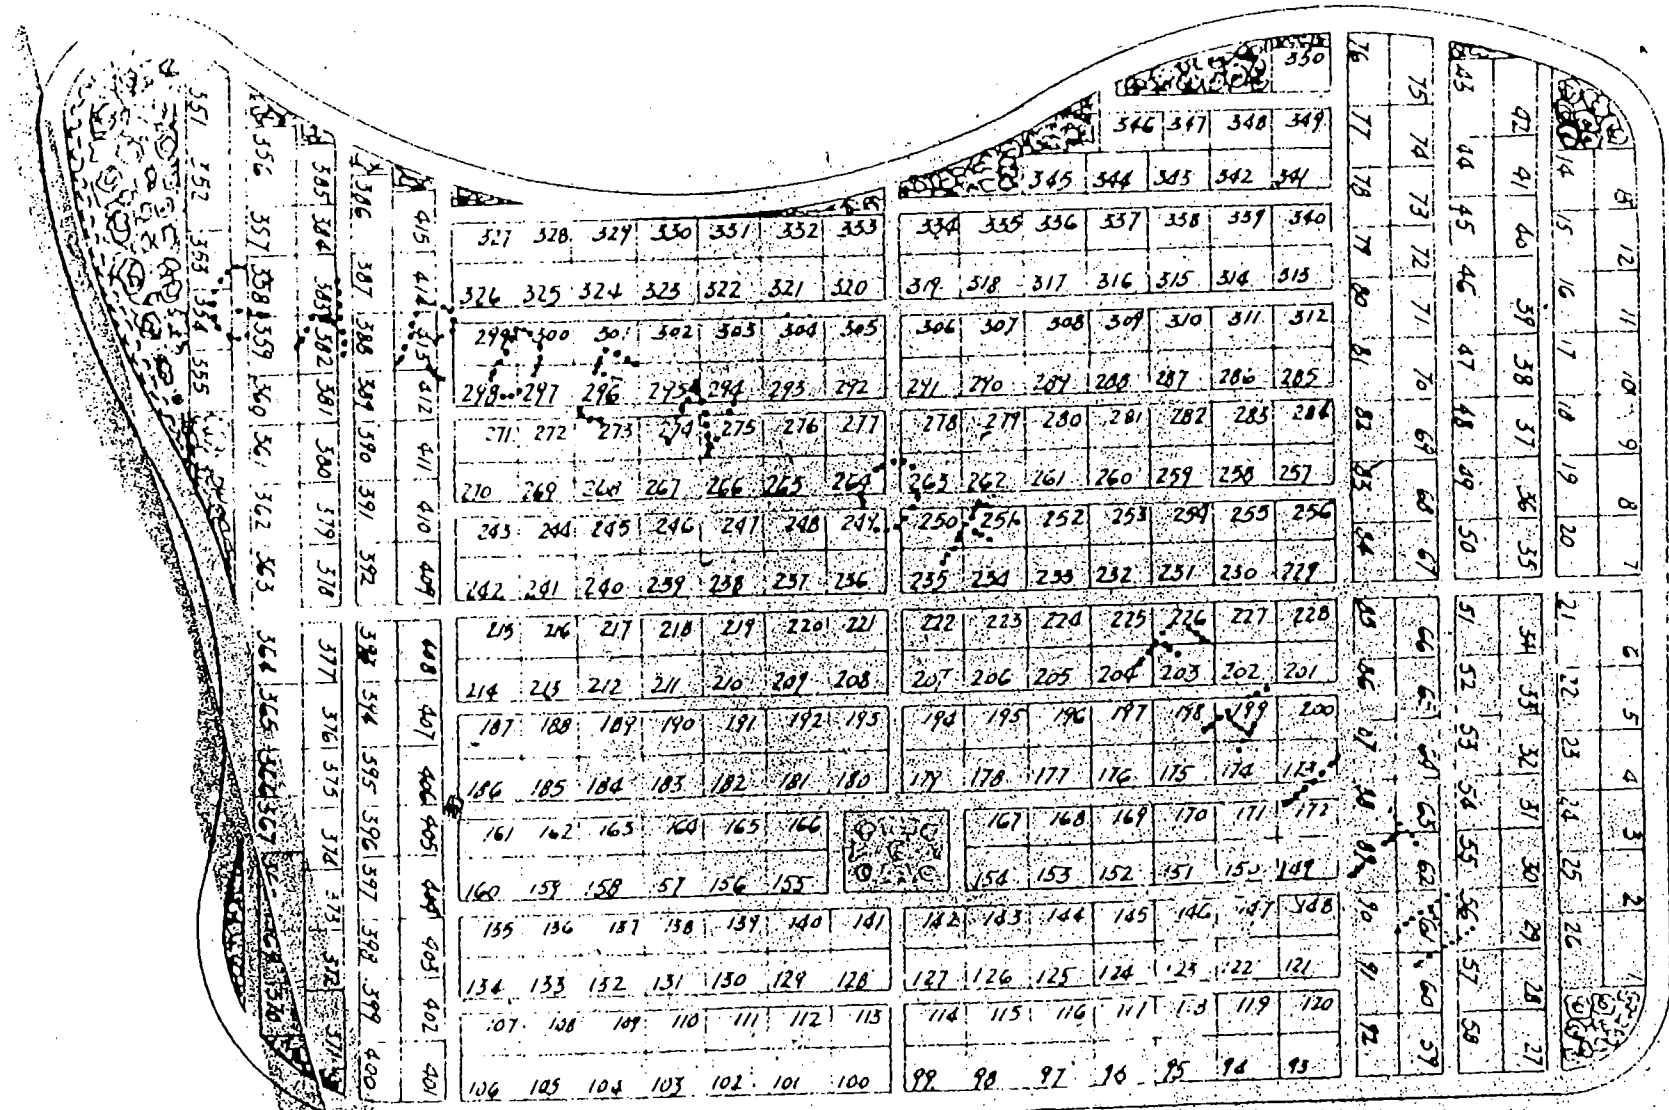 350
346 347 348 349
345 344 343 342 341
327 328 329 330 331 332 333 334 335 336 337 338 339 340
326 325 324 323 322 321 320 319 318 317 316 315 314 313
299 300 301 302 303 304 305 306 307 308 309 310 311 312
298 297 296 295 294 293 292 291 290 289 288 287 286 285
271 272 273 274 275 276 277 278 279 280 281 282 283 284
270 269 268 267 266 265 264 263 262 261 260 259 258 257
243 244 245 246 247 248 249 250 251 252 253 254 255 256
242 241 240 239 238 237 236 235 234 233 232 231 230 229
215 216 217 218 219 220 221 222 223 224 225 226 227 228
214 213 212 211 210 209 208 207 206 205 204 203 202 201
187 188 189 190 191 192 193 194 195 196 197 198 199 200
186 185 184 183 182 181 180 179 178 177 176 175 174 173
161 162 163 164 165 166 167 168 169 170 171 172
160 159 158 57 156 155 154 153 152 151 150 149
135 136 137 138 139 140 141 142 143 144 145 146 147 148
134 133 132 131 130 129 128 127 126 125 124 123 122 121
107 108 109 110 111 112 113 114 115 116 117 119 120
106 105 104 103 102 101 100 99 98 97 96 95 94 93
351 352 353 354 355
356 357 358 359 360 361 362 363 364 365 366 367 370
385 384 383 382 381 380 379 378 377 376 375 374 373 372 371
386 387 388 389 390 391 392 393 394 395 396 397 398 399 400
415 414 412 411 410 409 408 407 406 405 404 403 402 401
76 77 78 79 80 81 82 83 84 85 86 87 88 89 90 91 92
75 74 73 72 71 70 69 68 67 66 65 64 63 62 61 60 59
43 44 45 46 47 48 49 50 51 52 53 54 55 56 57 58
42 41 40 39 38 37 36 35 34 33 32 31 30 29 28 27
14 15 16 17 18 19 20 21 22 23 24 25 26
12 11 10 9 8 7 6 5 4 3 2 1